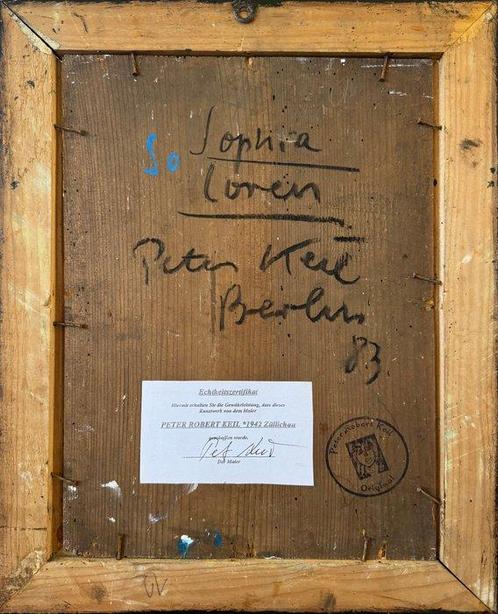 So Sophia
Loren
Peter Keil
Berlin
83
Echtheitszertifikat
Hiermit erhalten Sie die Gewährleistung, dass dieses
Kunstwerk von dem Maler
PETER ROBERT KEIL *1942 Züllichau
geschaffen wurde.
Der Maler
Peter Robert Keil
Original